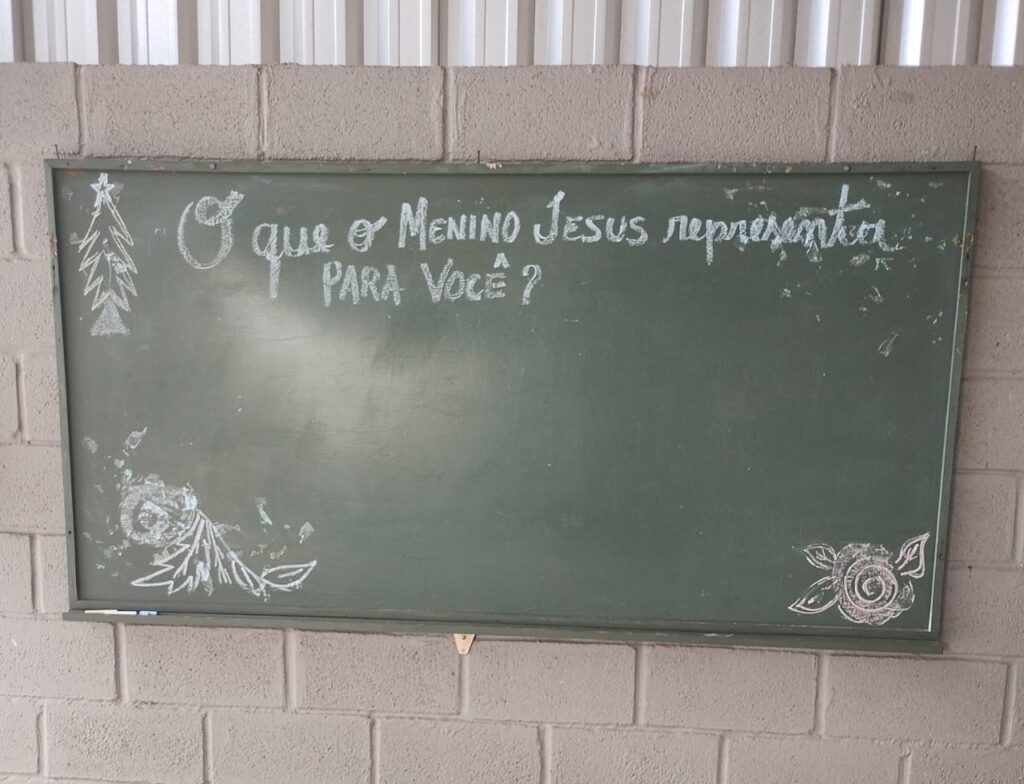 O que o MENINO JESUS representa
PARA VOCÊ?